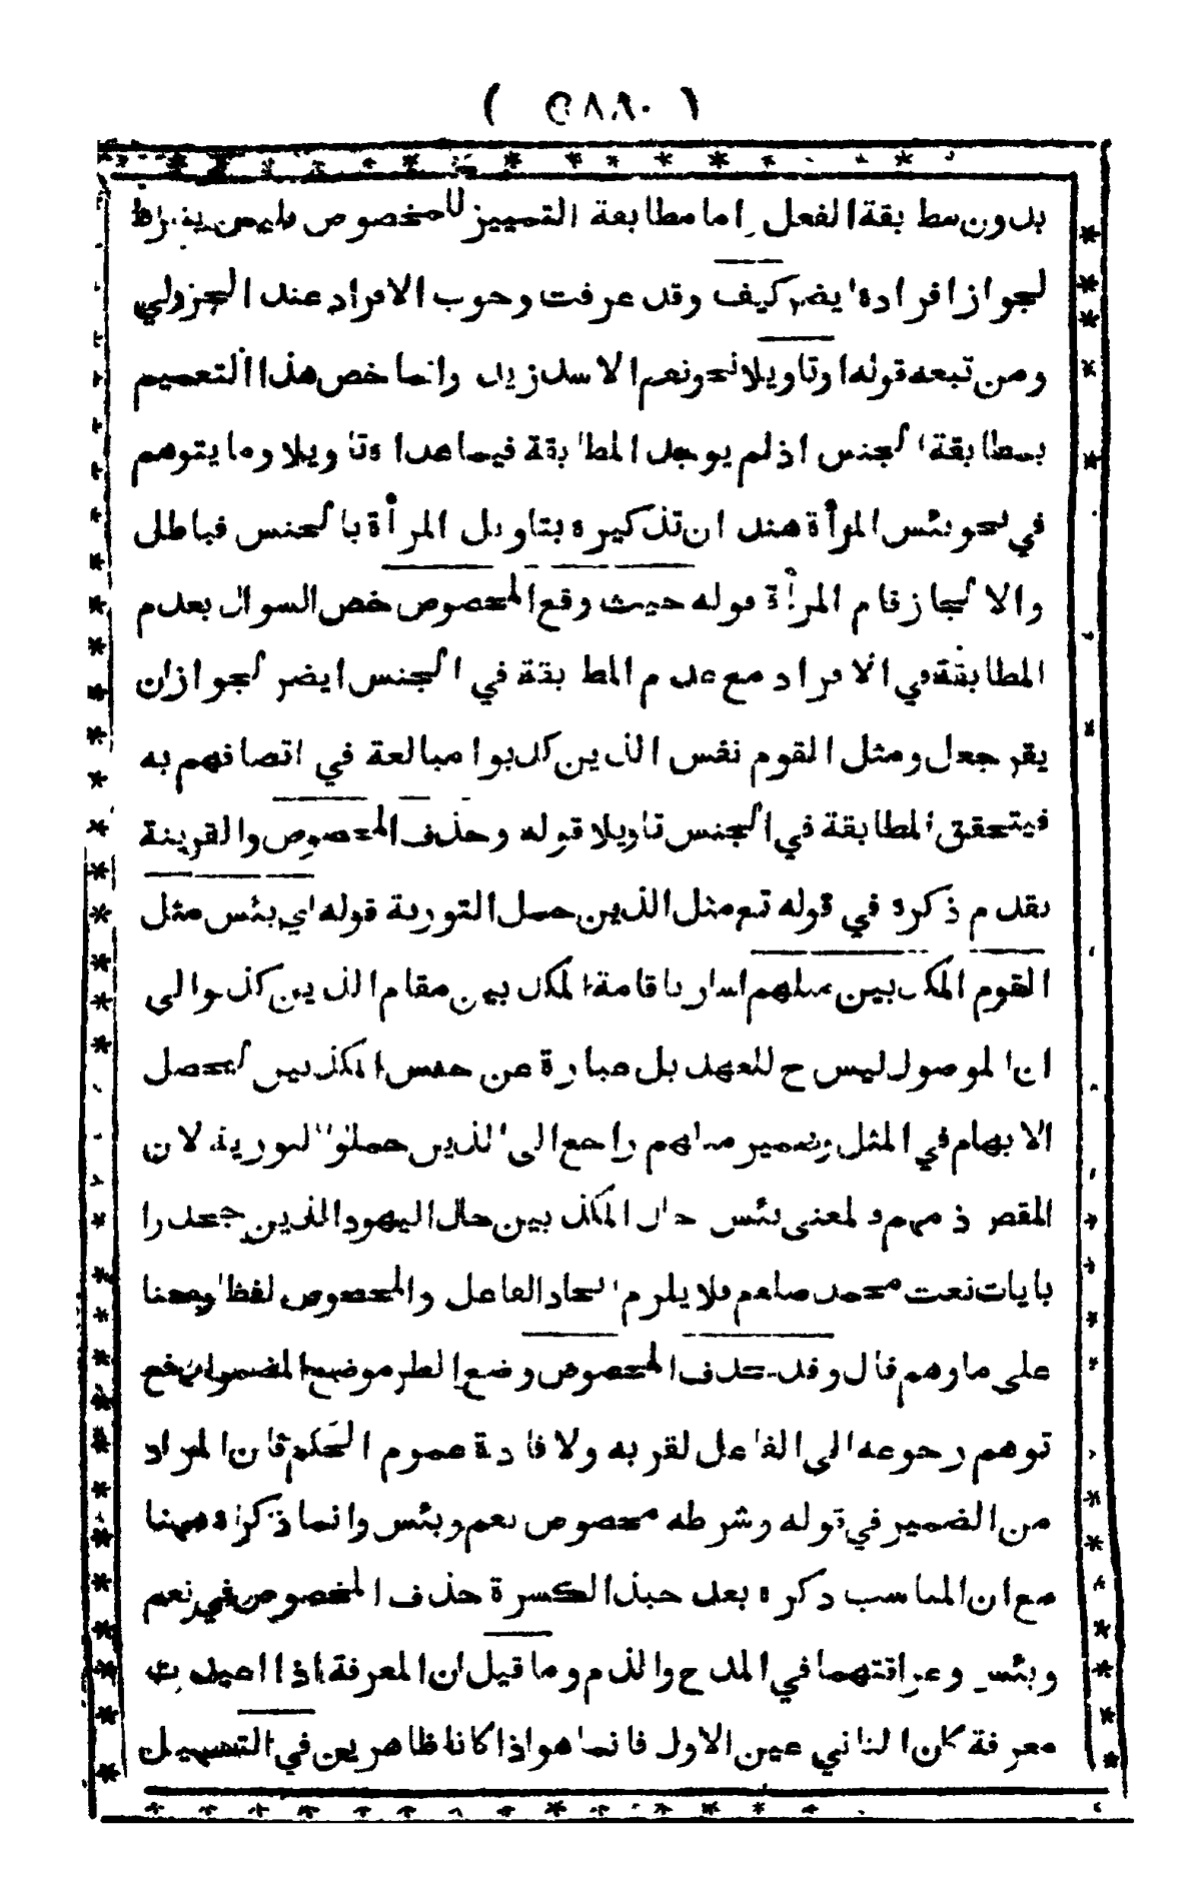 ( ٥٨٨٠ )
بدون مطابقة الفعل اما مطابقة التمييز للمخصوص
لجواز افراده ايضر كيف وقد عرفت وجوب الافراد عند الجزولي
ومن تبعه قوله او تاويلا نحو نعم الاسد زيد وانما خص هذا التعميم
بمطابقة الجنس اذ لم يوجد المطابقة فيما عداه تاويلا وما يتوهم
في نحو بئس المرأة هند ان تذكيره بتاويل المرأة بالجنس فباطل
والا لجاز قام المرأة قوله حيث وقع المخصوص خص السوال بعدم
المطابقة في الافراد مع عدم المطابقة في الجنس ايضر لجواز ان
يقر جعل ومثل القوم نفس الذين كذبوا مبالغة في اتصافهم به
فيتحقق المطابقة في الجنس تاويلا قوله وحذف المخصوص والقرينة
تقدم ذكره في قوله تع مثل الذين حمل التورية قوله اي بئس مثل
القوم المكذبين مثلهم اشار باقامة المكذبين مقام الذين كذبوا الى
ان الموصول ليس ح للعهد بل عبارة عن جنس المكذبين ليحصل
الابهام في المثل وضمير مثلهم راجع الى الذين حملوا التورية لان
المقصر ذمهم والمعنى بئس حال المكذبين حال اليهود الذين جحدوا
بايات نعت محمد صلعم فلا يلزم اتحاد الفاعل والمخصوص لفظا ومعنا
على ما وهم قال وقد حذف المخصوص وضع الظر موضع المضمر
توهم رجوعه الى الفاعل لقربه ولافادة عموم الحكم فان المراد
من الضمير في قوله وشرطه مخصوص نعم وبئس وانما ذكراه ههنا
مع ان المناسب ذكره بعد حبذا لكسرة حذف المخصوص في نعم
وبئس وعراقتهما في المدح والذم وما قيل ان المعرفة اذا اعيدت
معرفة كان الثاني عين الاول فانما هو اذا كانا ظاهرين في التسهيل